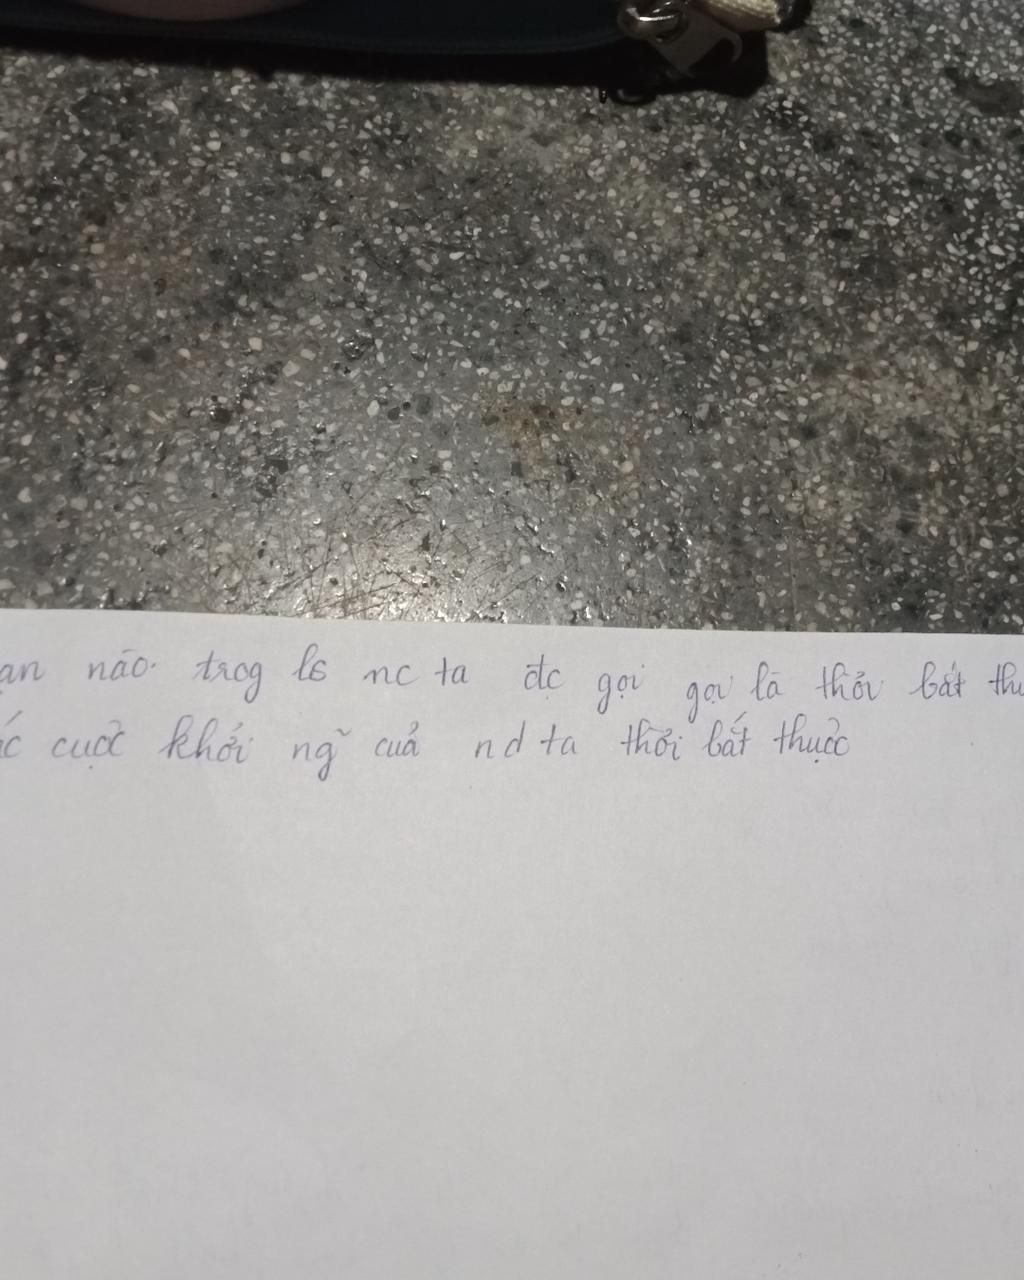 an nào trog ls nc ta đc gọi gọi là thời bắt thu
ác cuộc khởi ng~ của nd ta thời bắt thuộc